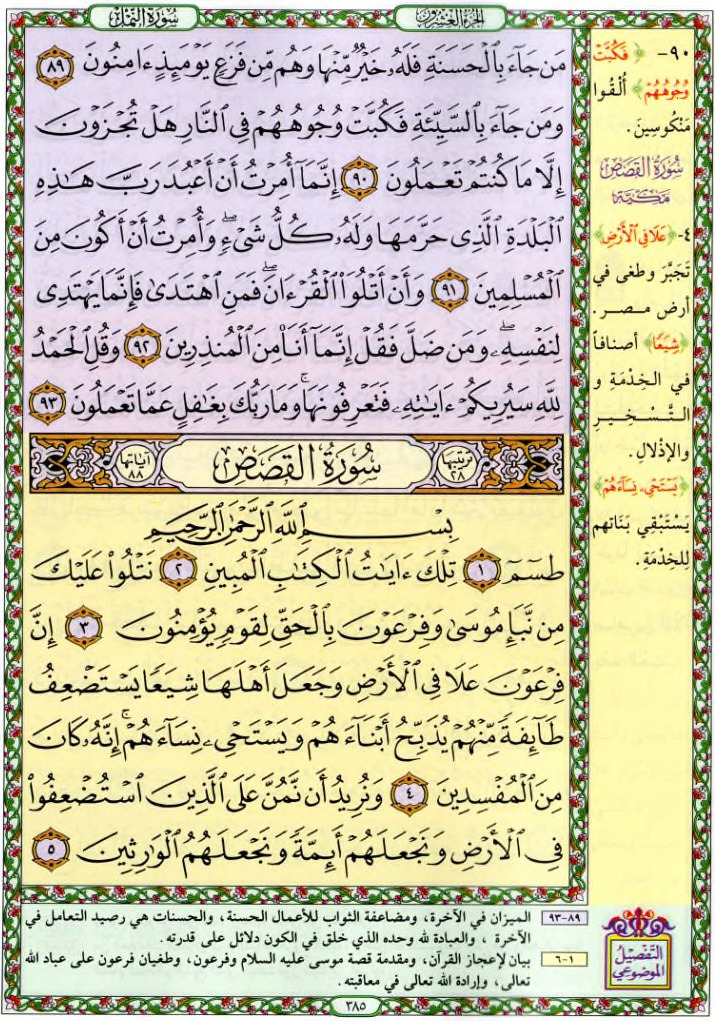 الجزء العشرون
سورة النمل
مَن جَآءَ بِٱلْحَسَنَةِ فَلَهُۥ خَيْرٌ مِّنْهَا وَهُم مِّن فَزَعٍ يَوْمَئِذٍ ءَامِنُونَ ٨٩
وَمَن جَآءَ بِٱلسَّيِّئَةِ فَكُبَّتْ وُجُوهُهُمْ فِى ٱلنَّارِ هَلْ تُجْزَوْنَ
إِلَّا مَا كُنتُمْ تَعْمَلُونَ ٩٠ إِنَّمَآ أُمِرْتُ أَنْ أَعْبُدَ رَبَّ هَـٰذِهِ
ٱلْبَلْدَةِ ٱلَّذِى حَرَّمَهَا وَلَهُۥ كُلُّ شَىْءٍ ۖ وَأُمِرْتُ أَنْ أَكُونَ مِنَ
ٱلْمُسْلِمِينَ ٩١ وَأَنْ أَتْلُوَا۟ ٱلْقُرْءَانَ ۖ فَمَنِ ٱهْتَدَىٰ فَإِنَّمَا يَهْتَدِى
لِنَفْسِهِۦ ۖ وَمَن ضَلَّ فَقُلْ إِنَّمَآ أَنَا۠ مِنَ ٱلْمُنذِرِينَ ٩٢ وَقُلِ ٱلْحَمْدُ
لِلَّهِ سَيُرِيكُمْ ءَايَـٰتِهِۦ فَتَعْرِفُونَهَا ۚ وَمَا رَبُّكَ بِغَـٰفِلٍ عَمَّا تَعْمَلُونَ ٩٣
ترتيبها ٢٨ سورة القصص آياتها ٨٨
بِسْمِ ٱللَّهِ ٱلرَّحْمَـٰنِ ٱلرَّحِيمِ
طسٓمٓ ١ تِلْكَ ءَايَـٰتُ ٱلْكِتَـٰبِ ٱلْمُبِينِ ٢ نَتْلُوا۟ عَلَيْكَ
مِن نَّبَإِ مُوسَىٰ وَفِرْعَوْنَ بِٱلْحَقِّ لِقَوْمٍ يُؤْمِنُونَ ٣ إِنَّ
فِرْعَوْنَ عَلَا فِى ٱلْأَرْضِ وَجَعَلَ أَهْلَهَا شِيَعًا يَسْتَضْعِفُ
طَآئِفَةً مِّنْهُمْ يُذَبِّحُ أَبْنَآءَهُمْ وَيَسْتَحْىِۦ نِسَآءَهُمْ ۚ إِنَّهُۥ كَانَ
مِنَ ٱلْمُفْسِدِينَ ٤ وَنُرِيدُ أَن نَّمُنَّ عَلَى ٱلَّذِينَ ٱسْتُضْعِفُوا۟
فِى ٱلْأَرْضِ وَنَجْعَلَهُمْ أَئِمَّةً وَنَجْعَلَهُمُ ٱلْوَٰرِثِينَ ٥
٩٠- ﴿فَكُبَّتْ
وُجُوهُهُمْ﴾ أُلْقُوا
مَنْكُوسِينَ.
سورة القصص
مكية
٤- ﴿عَلَا فِى ٱلْأَرْضِ﴾
تَجَبَّرَ وطغى في
أرض مصر.
﴿شِيَعًا﴾ أصنافاً
في الخِدْمَةِ و
التَّسْخِيرِ
والإذْلالِ.
﴿يَسْتَحْىِۦ نِسَآءَهُمْ﴾
يَسْتَبْقِي بَنَاتهم
لِلخدْمَةِ.
التفصيل
الموضوعي
٨٩-٩٣ الميزان في الآخرة، ومضاعفة الثواب للأعمال الحسنة، والحسنات هي رصيد التعامل في
الآخرة، والعبادة لله وحده الذي خلق في الكون دلائل على قدرته.
١-٦ بيان لإعجاز القرآن، ومقدمة قصة موسى عليه السلام وفرعون، وطغيان فرعون على عباد الله
تعالى، وإرادة الله تعالى في معاقبته.
٣٨٥